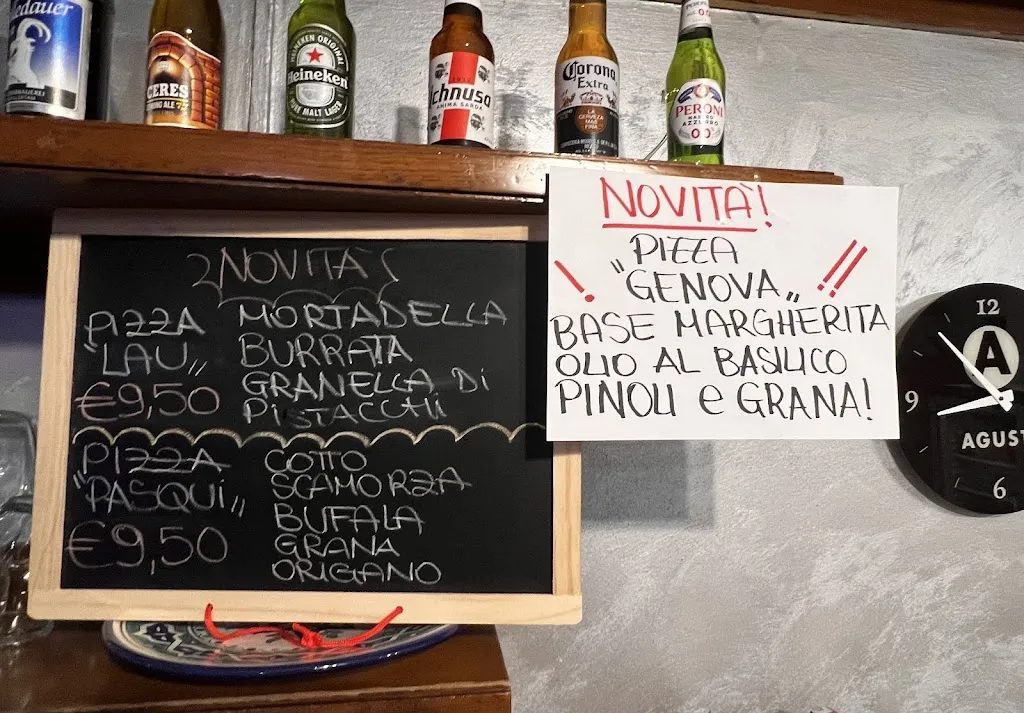 CERES
HEINEKEN ORIGINAL
Heineken
PURE MALT LAGER
Ichnusa
ANIMA SARDA
Corona
Extra
PERONI
NASTRO
AZZURRO
0.0
NOVITÀ
PIZZA
"LAU"
€9,50
MORTADELLA
BURRATA
GRANELLA DI
PISTACCHI
PIZZA
"PASQUI"
€9,50
COTTO
SCAMORZA
BUFALA
GRANA
ORIGANO
NOVITA'!
PIZZA
"GENOVA"
BASE MARGHERITA
OLIO AL BASILICO
PINOLI e GRANA!
12
A
9
AGUST
6